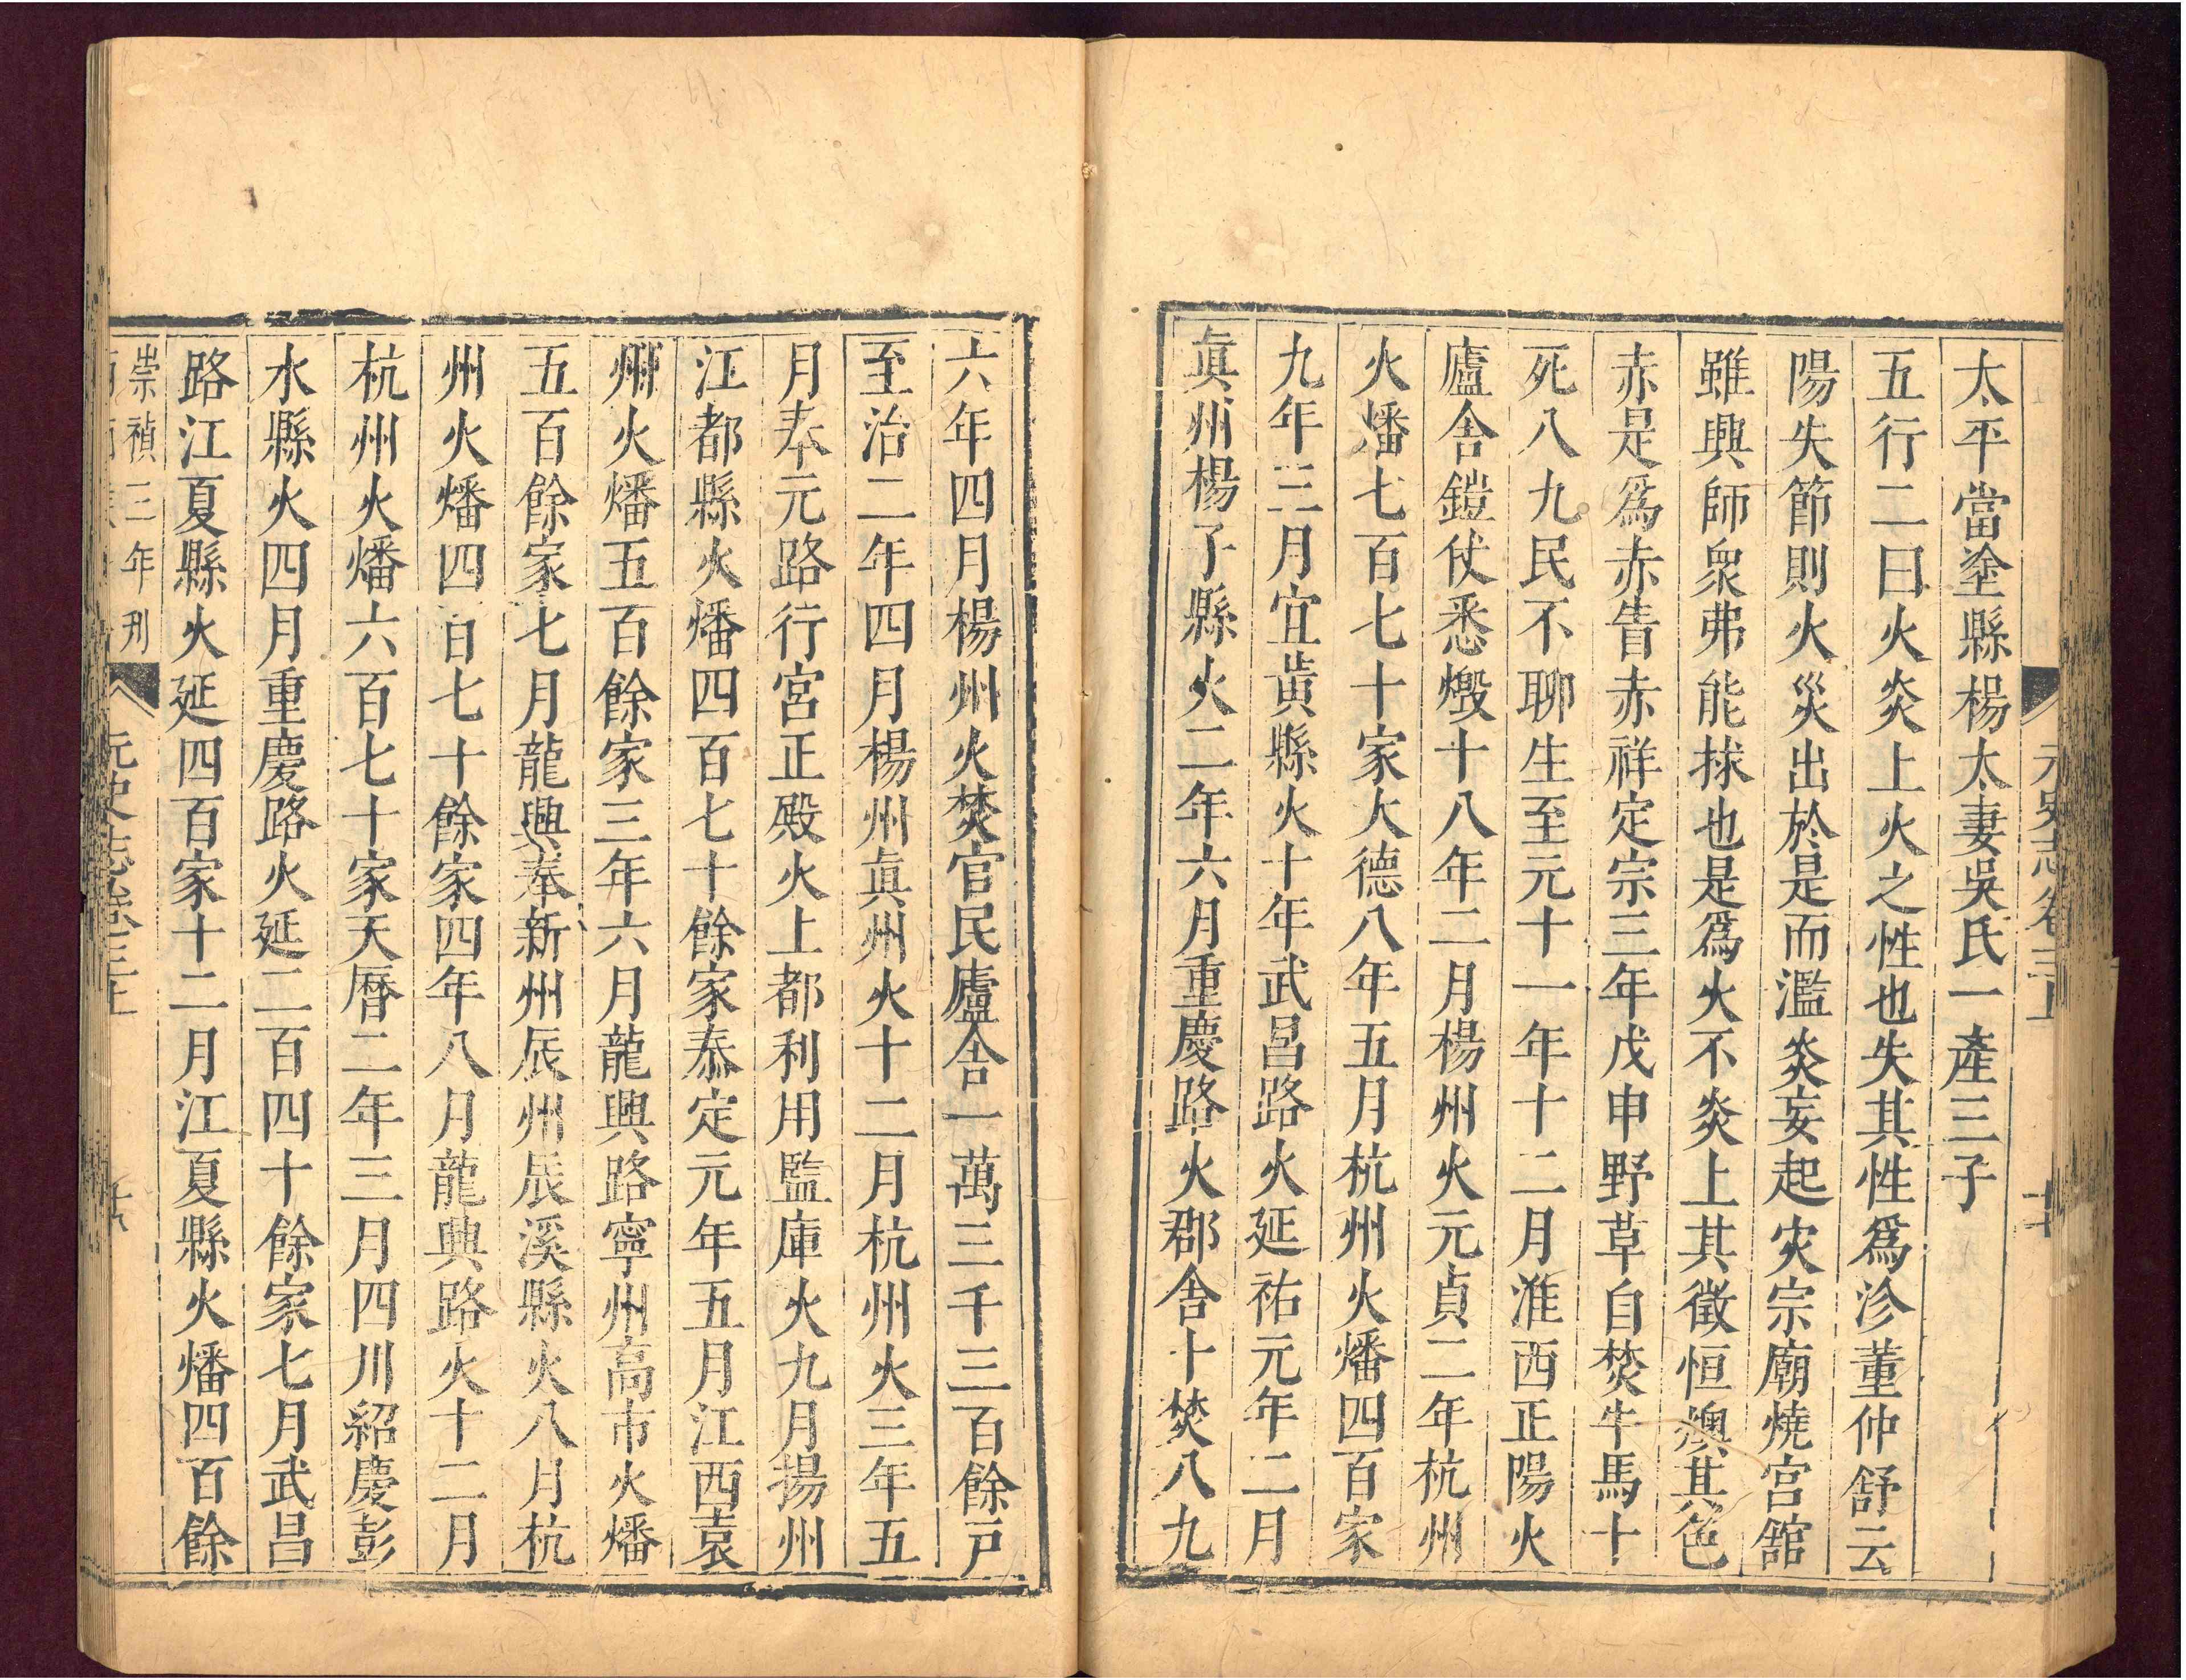 元史志卷三上
太平當塗縣楊太妻吳氏一產三子
五行二曰火炎上火之性也失其性爲沴董仲舒云
陽失節則火災出於是而濫炎妄起灾宗廟燒宮舘
雖興師衆弗能捄也是爲火不炎上其徵恒燠其色
赤是爲赤眚赤祥定宗三年戊申野草自焚牛馬十
死八九民不聊生至元十一年十二月淮西正陽火
廬舍鎧仗悉燬十八年二月楊州火元貞二年杭州
火燔七百七十家大德八年五月杭州火燔四百家
九年三月宜黃縣火十年武昌路火延祐元年二月
眞州楊子縣火二年六月重慶路火郡舍十焚八九
六年四月楊州火焚官民廬舍一萬三千三百餘戸
至治二年四月楊州眞州火十二月杭州火三年五
月奉元路行宮正殿火上都利用監庫火九月揚州
江都縣火燔四百七十餘家泰定元年五月江西袁
州火燔五百餘家三年六月龍興路寧州高市火燔
五百餘家七月龍興奉新州辰州辰溪縣火八月杭
州火燔四百七十餘家四年八月龍興路火十二月
杭州火燔六百七十家天曆二年三月四川紹慶彭
水縣火四月重慶路火延二百四十餘家七月武昌
路江夏縣火延四百家十二月江夏縣火燔四百餘
崇禎三年刋
元史志卷三上